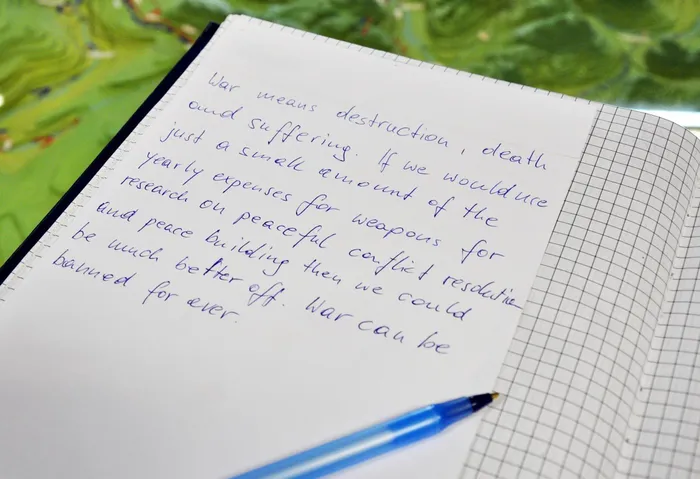 War means destruction, death
and suffering. If we would use
just a small amount of the
yearly expenses for weapons for
research on peaceful conflict resolution
and peace building then we could
be much better off. War can be
banned for ever.